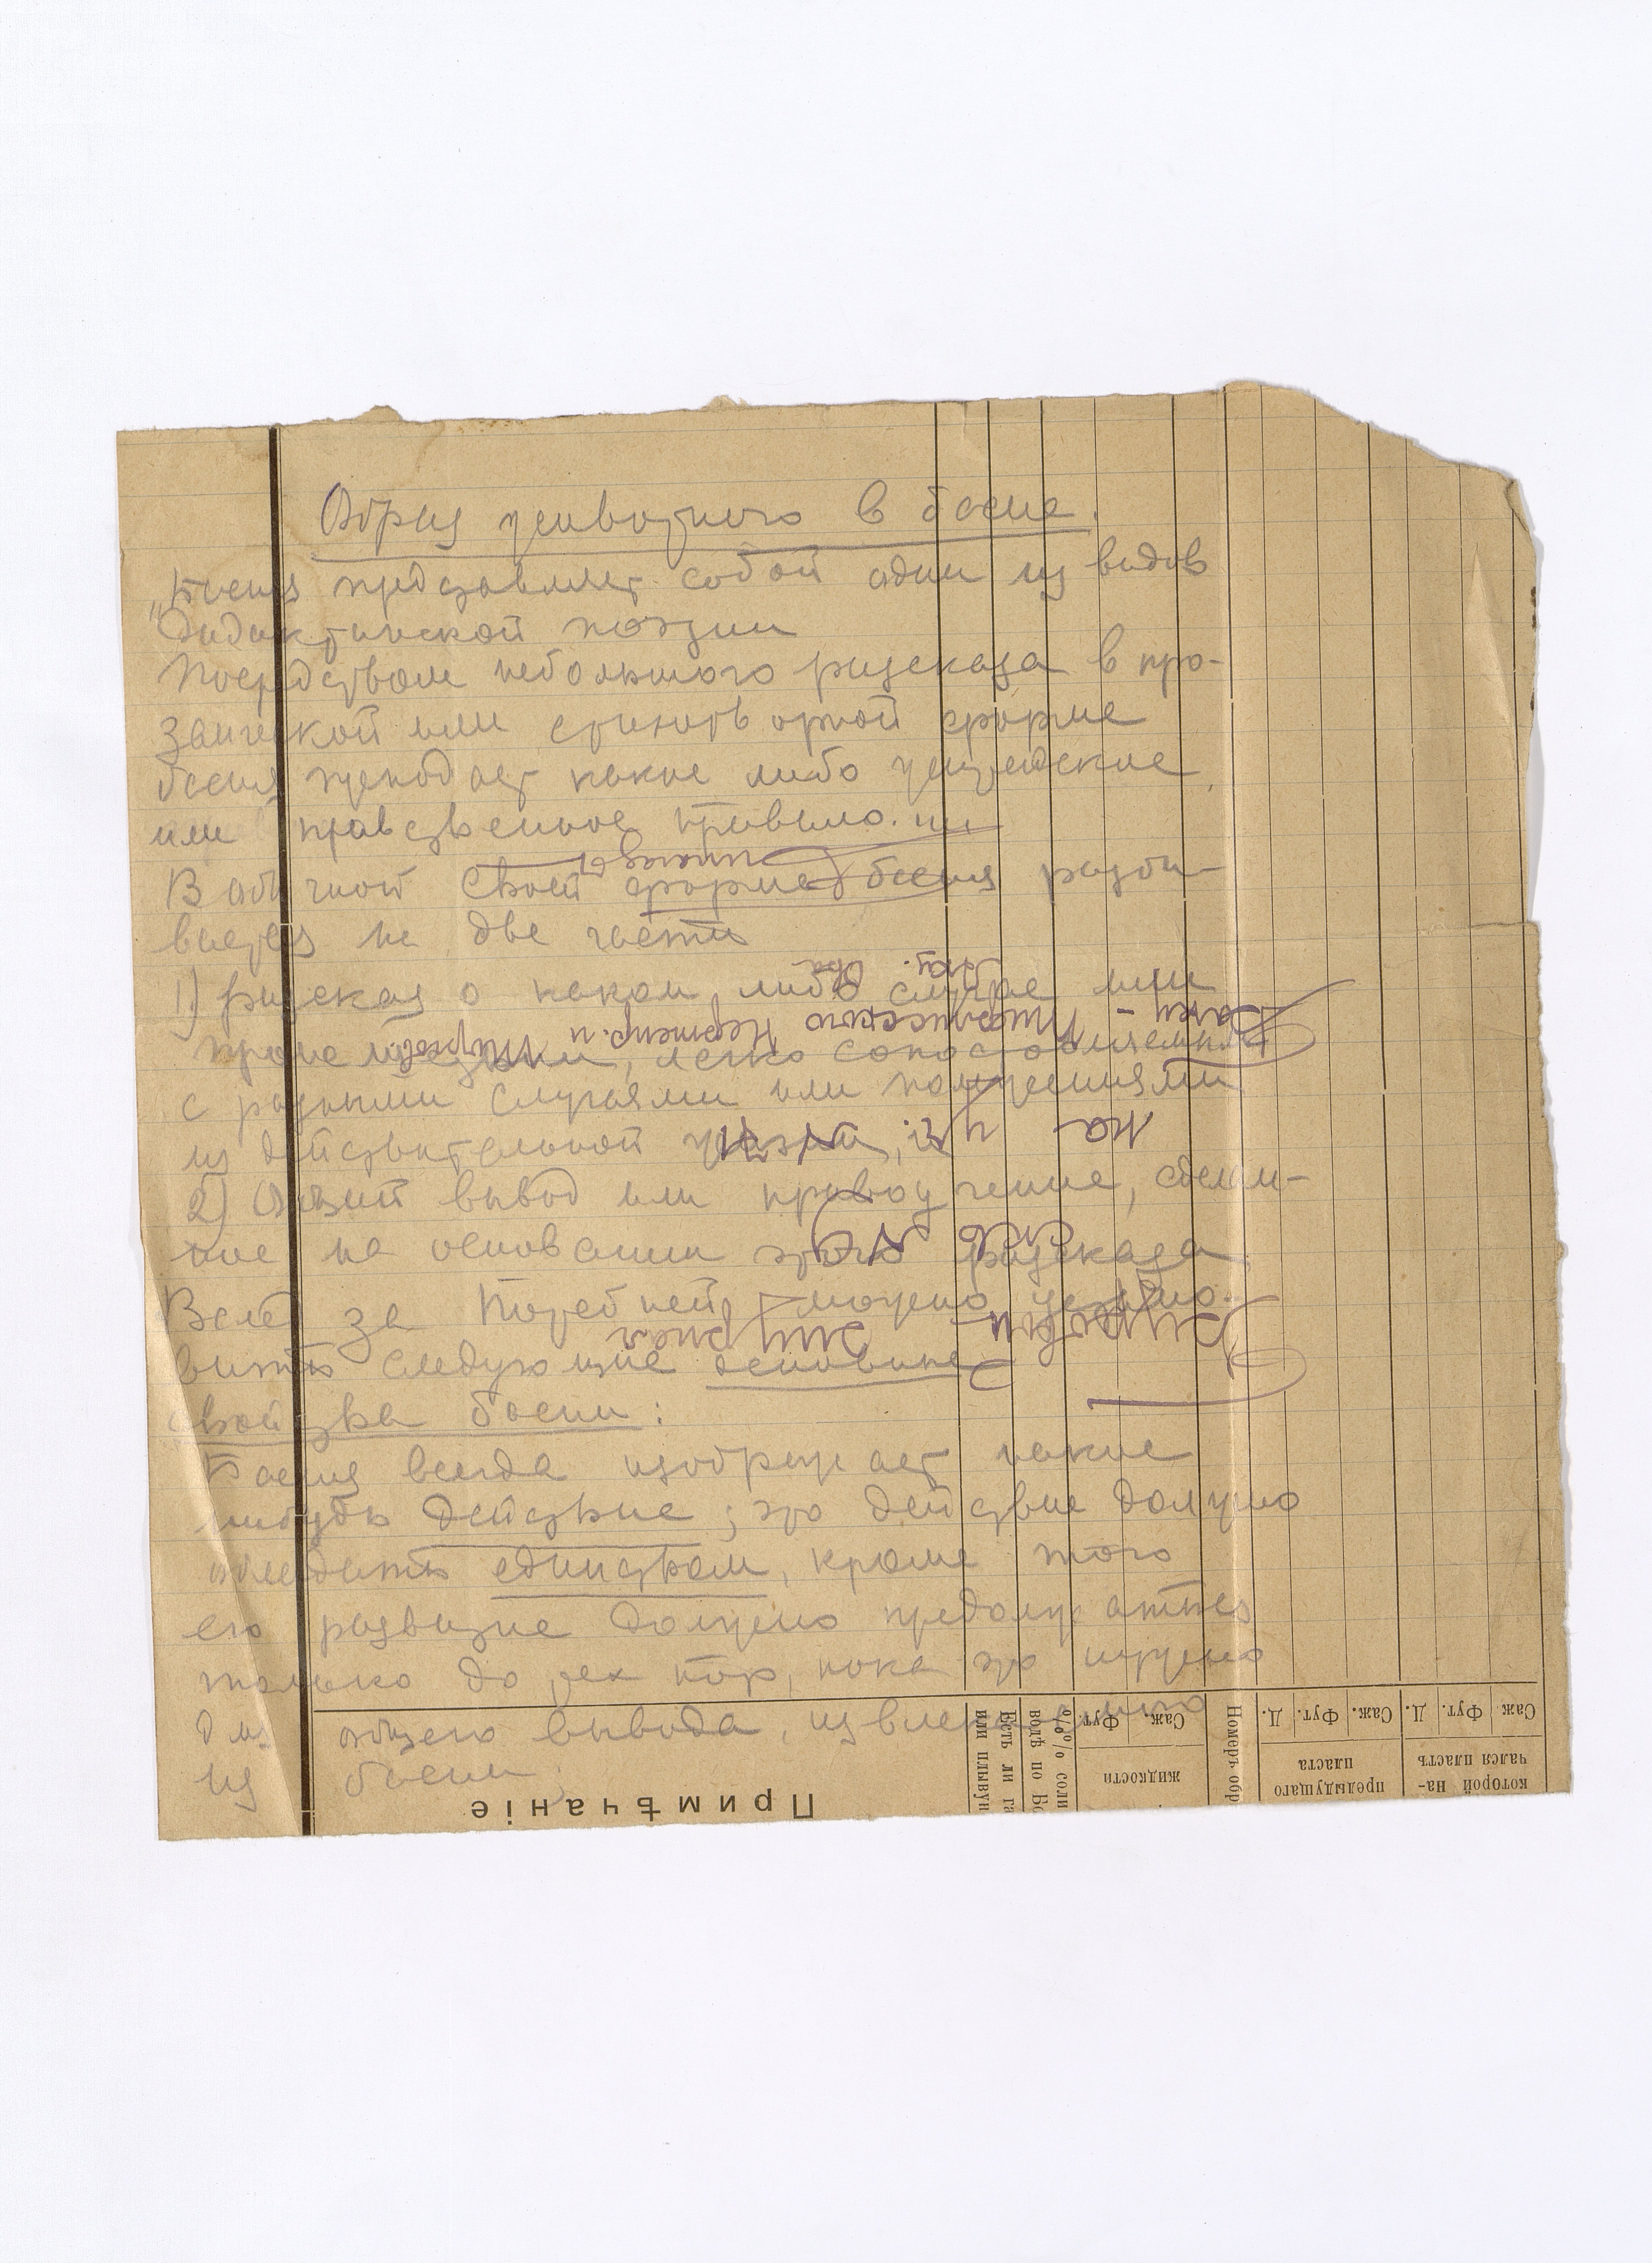 Образ животного в басне.
„Басня представляет собой один из видов
дидактической поэзии
Посредством небольшого рассказа в про-
заической или стихотворной форме
басня преподает какие либо житейские
или нравственное правило.
В обычной своей форме басня разби-
вается на две части
1) рассказ о каком либо случае или
происшествии, легко сопоставляемым
с разными случаями или положениями
из действительной жизни, и
2) Общий вывод или нравоучение, сделан-
ное на основании этого рассказа
Вслед за Потебней можно устано-
вить следующие основные
свойства басни:
Басня всегда изображает какое
нибудь действие; это действие должно
обладать единством, кроме того
его развитие должно продолжаться
только до тех пор, пока это нужно
для общего вывода, извлекаемого
из басни;
Примѣчаніе
или плывун
Есть ли га
водѣ по Бо
% % соли
Фут. Саж.
жидкости
Номеръ обр
Д. Фут. Саж.
предыдущаго
пласта
Д. Фут. Саж
которой на-
чался пластъ